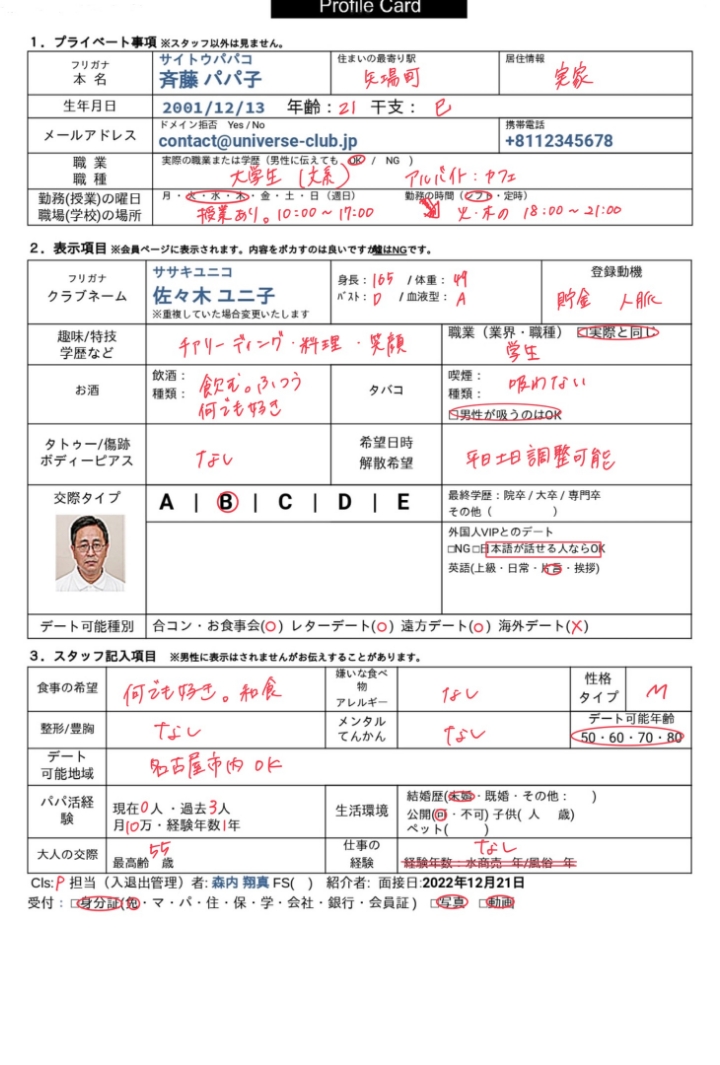 Profile Card
1．プライベート事項 ※スタッフ以外は見ません。
フリガナ
本 名
サイトウパパコ
斉藤 パパ子
住まいの最寄り駅
矢場町
居住情報
実家
生年月日
2001/12/13 年齢：21 干支：巳
メールアドレス
ドメイン拒否 Yes / No
contact@universe-club.jp
携帯電話
+8112345678
職 業
職 種
実際の職業または学歴（男性に伝えても OK / NG ）
大学生（文系） アルバイト：カフェ
勤務(授業)の曜日
職場(学校)の場所
月・火・水・木・金・土・日（週日） 勤務の時間（シフト・定時）
授業あり。10:00～17:00 火・木の 18:00～21:00
2．表示項目 ※会員ページに表示されます。内容をボカすのは良いですが嘘はNGです。
フリガナ
クラブネーム
ササキユニコ
佐々木 ユニ子
※重複していた場合変更いたします
身長：165 / 体重：49
バスト：D / 血液型：A
登録動機
貯金 人脈
趣味/特技
学歴など
チアリーディング・料理・笑顔
職業（業界・職種） □実際と同じ
学生
お酒
飲酒：飲む。ふつう
種類：何でも好き
タバコ
喫煙：吸わない
種類：
□男性が吸うのはOK
タトゥー/傷跡
ボディーピアス
なし
希望日時
解散希望
平日土日調整可能
交際タイプ
A | B | C | D | E
最終学歴：院卒 / 大卒 / 専門卒
その他（ ）
外国人VIPとのデート
□NG □日本語が話せる人ならOK
英語(上級・日常・片言・挨拶)
デート可能種別
合コン・お食事会(○) レターデート(○) 遠方デート(○) 海外デート(×)
3．スタッフ記入項目 ※男性に表示はされませんがお伝えすることがあります。
食事の希望
何でも好き。和食
嫌いな食べ
物
アレルギー
なし
性格
タイプ
M
整形/豊胸
なし
メンタル
てんかん
なし
デート可能年齢
50・60・70・80
デート
可能地域
名古屋市内 OK
パパ活経
験
現在0人 ・過去3人
月10万・経験年数1年
生活環境
結婚歴(未婚・既婚・その他： )
公開(可・不可) 子供( 人 歳)
ペット( )
大人の交際
55
最高齢 歳
仕事の
経験
なし
経験年数：水商売 年/風俗 年
Cls:P 担当（入退出管理）者: 森内 翔真 FS( ) 紹介者: 面接日:2022年12月21日
受付：□身分証(免・マ・パ・住・保・学・会社・銀行・会員証) □写真 □動画